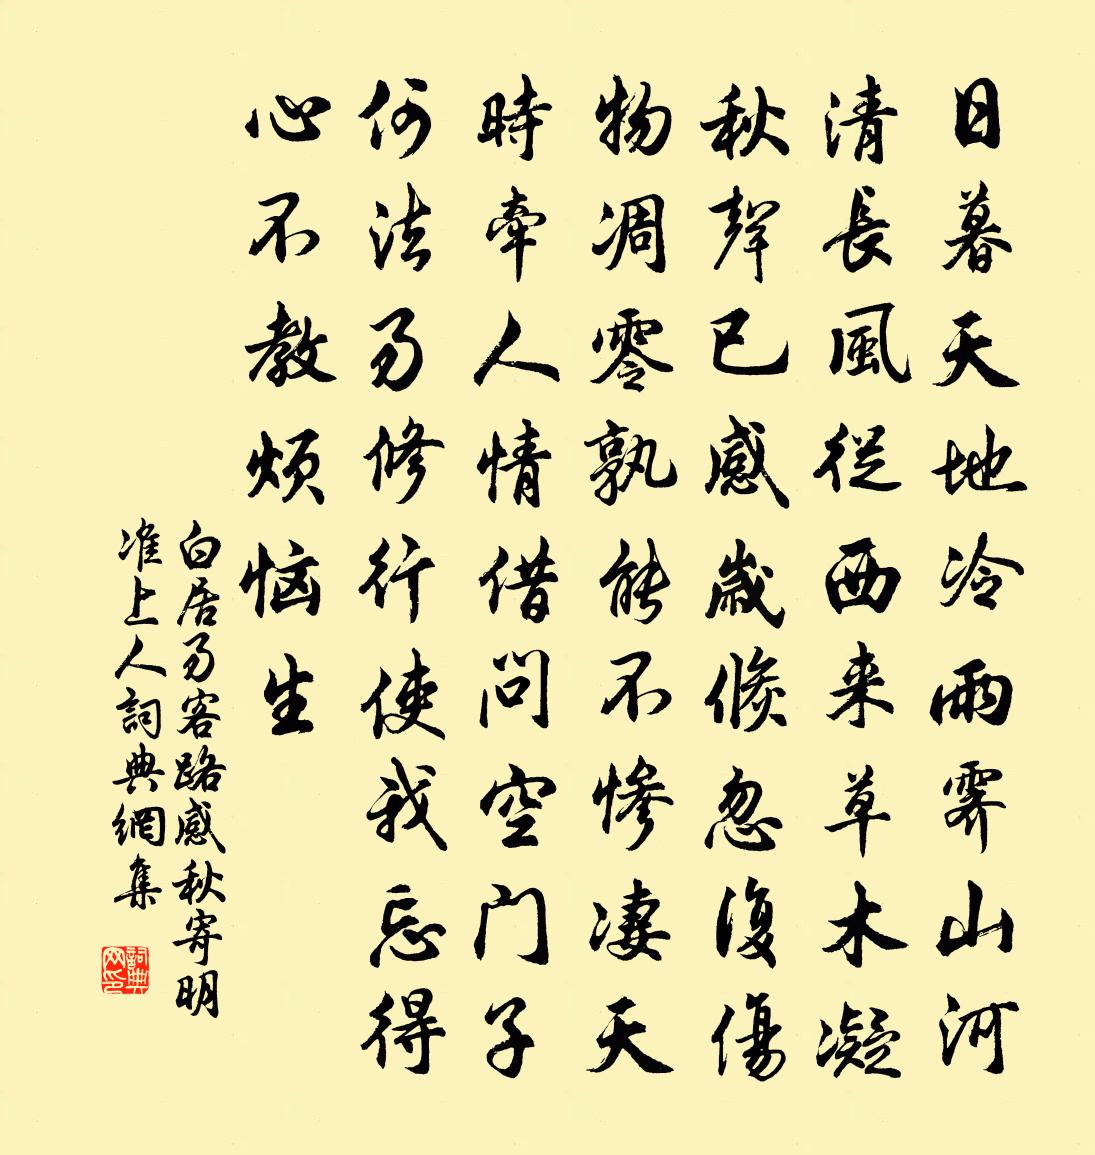 日暮天地冷雨霽山河
清長風從西来草木凝
秋聲已感歲倏忽復傷
物凋零孰能不慘凄天
時牽人情借问空门子
何法易修行使我忘得
心不教煩恼生
白居易客路感秋寄明
准上人詞典網集
詞典
网印